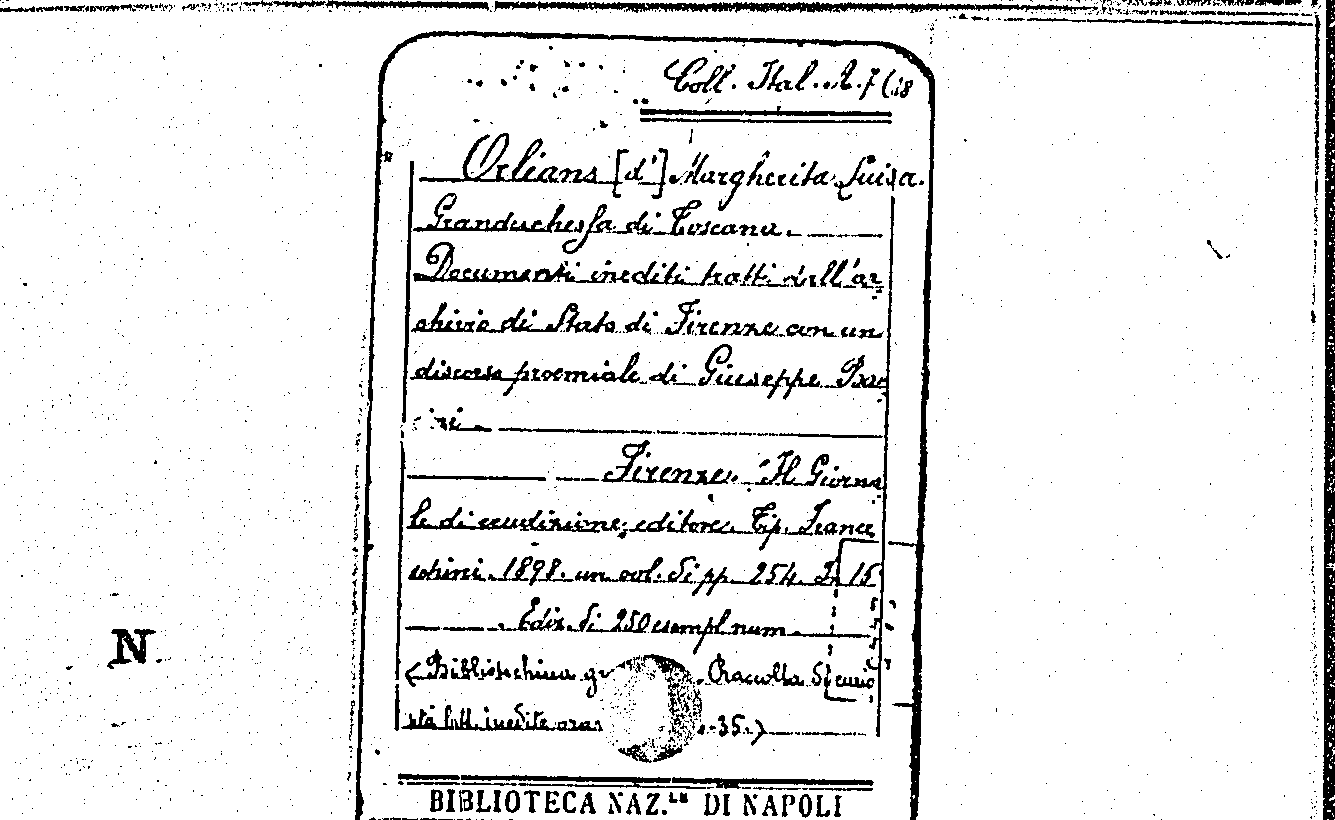 Coll. Ital. 2.7 (38
Orlians [d'] Margherita Luisa.
Granduchessa di Toscana.
Documenti inediti tratti dall'ar
chivio di Stato di Firenze con un
discorso proemiale di Giuseppe
Firenze. "Il Giorna
le di erudizione, editore. Tip. France
schini. 1898. un vol. di pp. 254. In 15
Ediz. di 250 esempl. num.
N.
(Bibliotechina Raccolta di curio
sità lett. inedite 35.)
BIBLIOTECA NAZ.LE DI NAPOLI